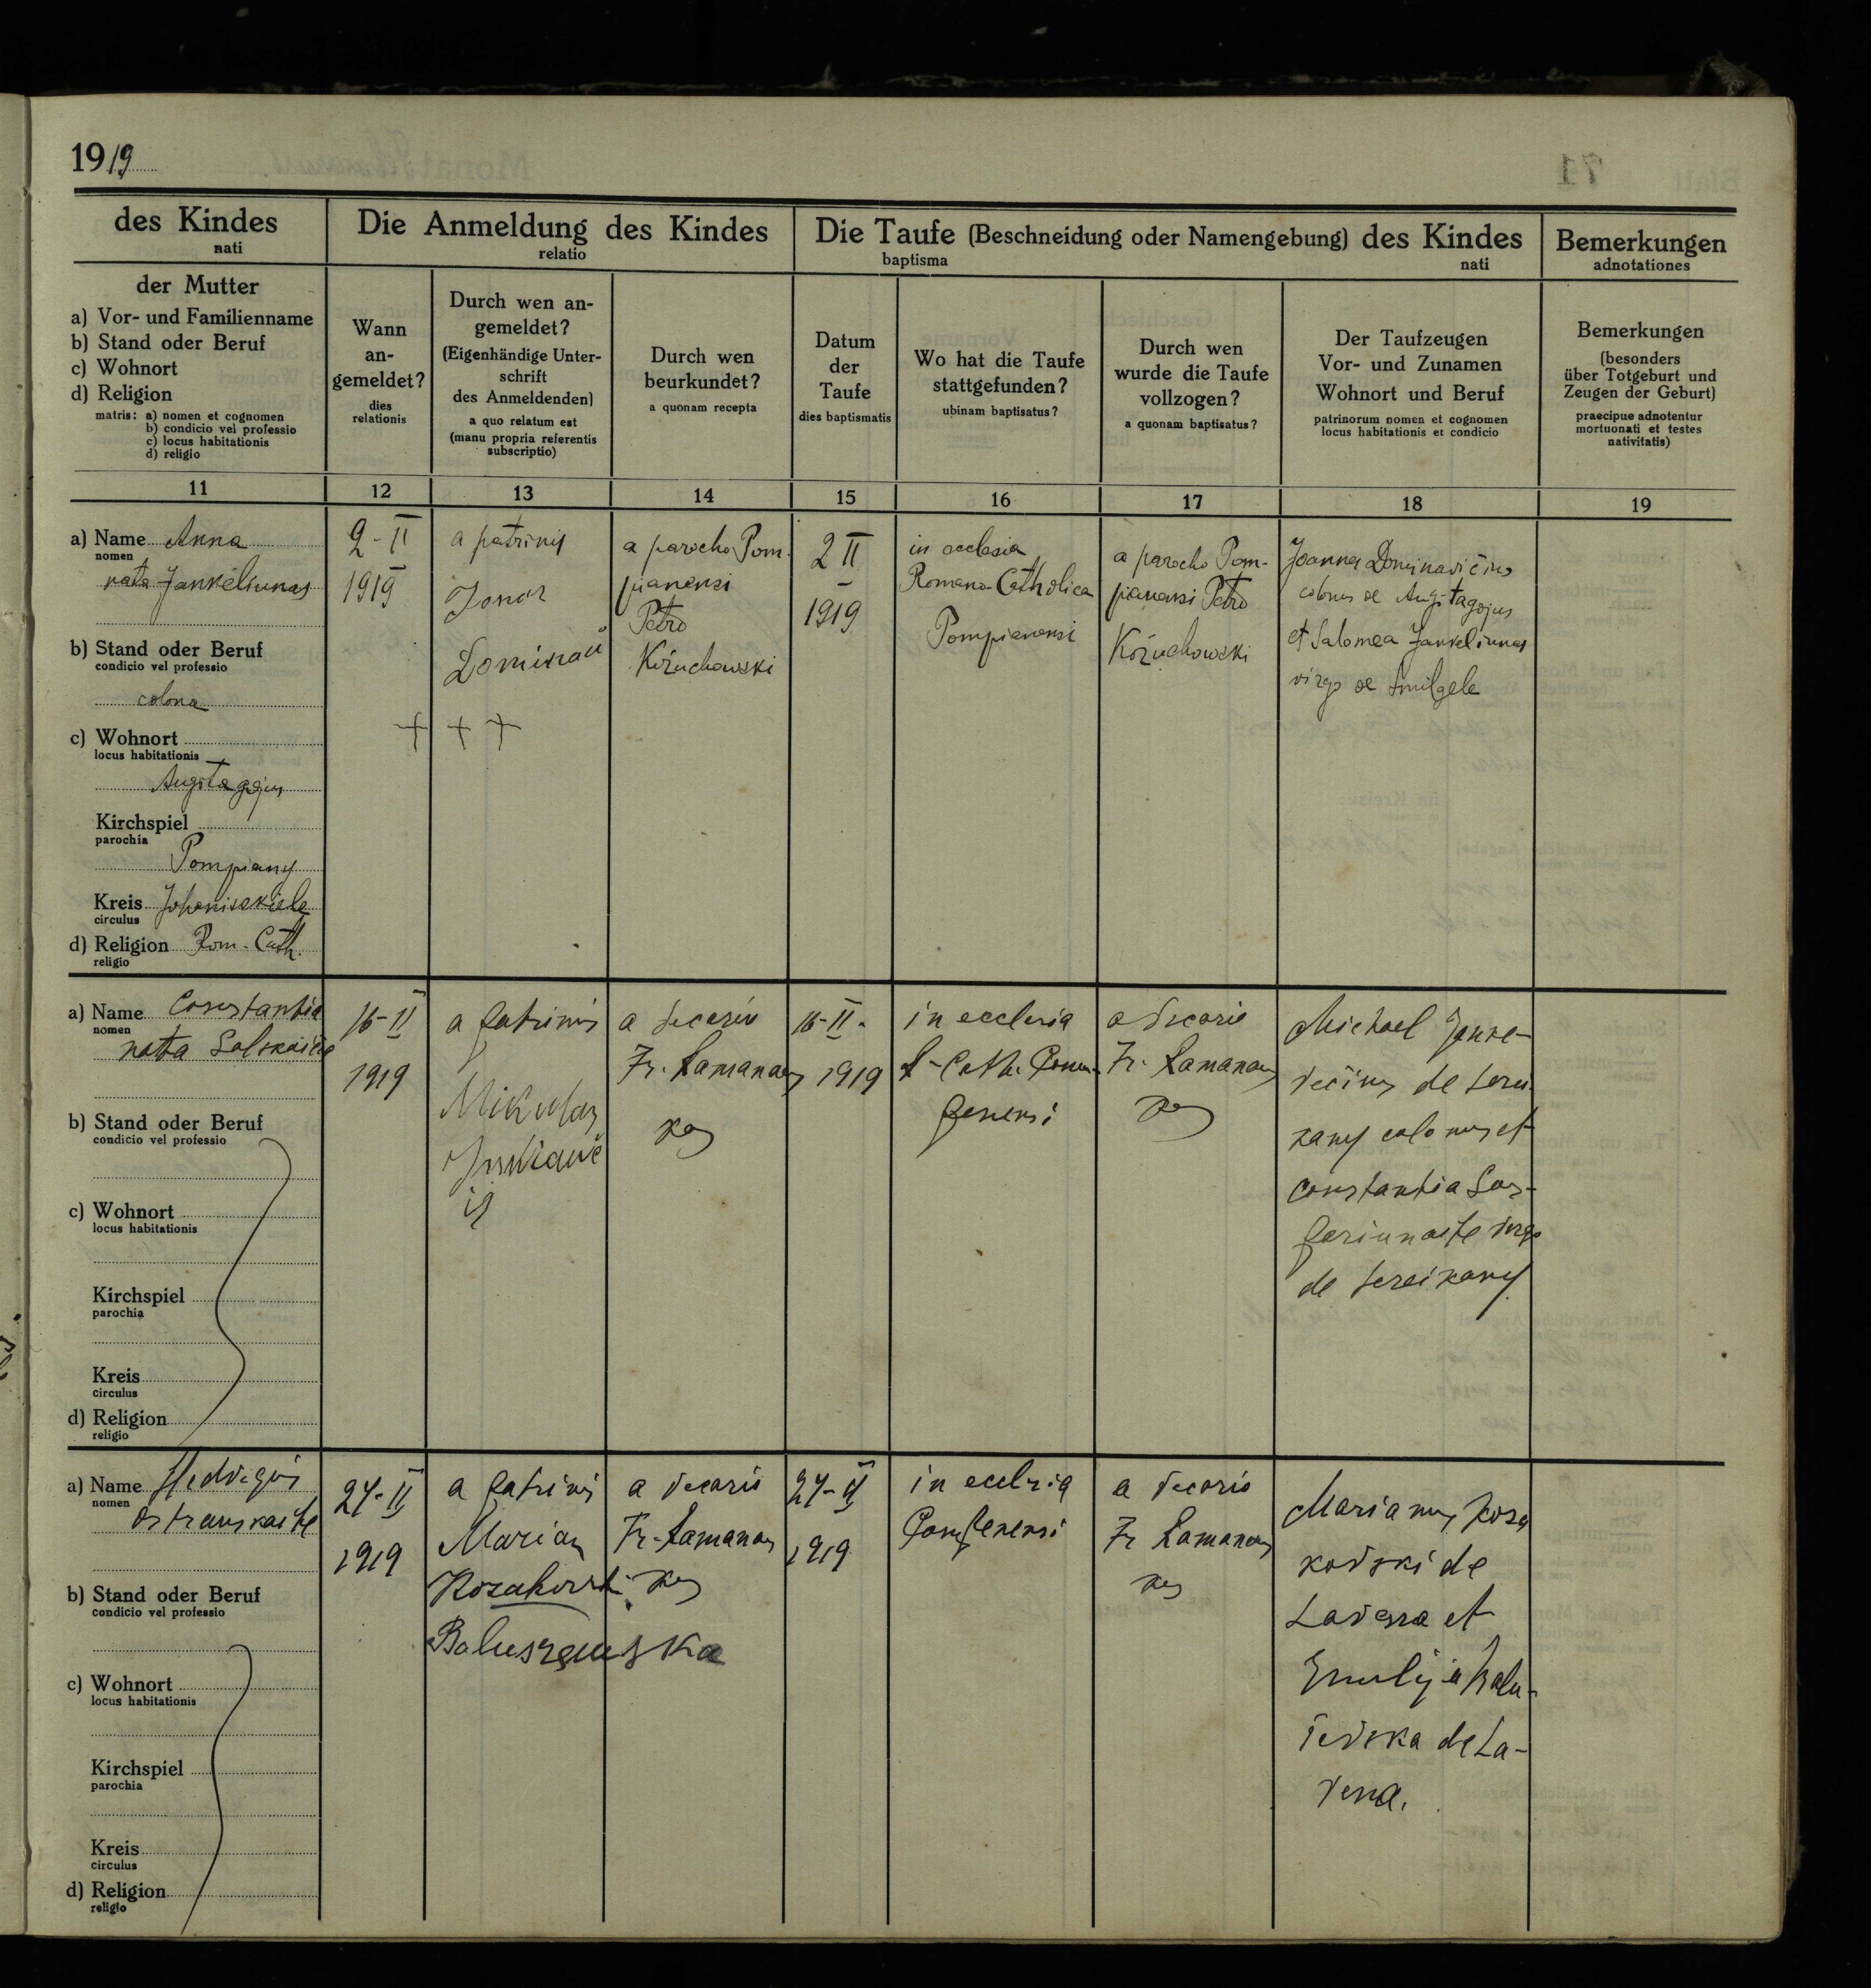 1919
des Kindes
nati
Die Anmeldung des Kindes
relatio
Die Taufe (Beschneidung oder Namengebung) des Kindes
baptisma
nati
Bemerkungen
adnotationes
der Mutter
a) Vor- und Familienname
b) Stand oder Beruf
c) Wohnort
d) Religion
matris: a) nomen et cognomen
b) condicio vel professio
c) locus habitationis
d) religio
Wann
an-
gemeldet?
dies
relationis
Durch wen an-
gemeldet?
(Eigenhändige Unter-
schrift
des Anmeldenden)
a quo relatum est
(manu propria referentis
subscriptio)
Durch wen
beurkundet?
a quonam recepta
Datum
der
Taufe
dies baptismatis
Wo hat die Taufe
stattgefunden?
ubinam baptisatus?
Durch wen
wurde die Taufe
vollzogen?
a quonam baptisatus?
Der Taufzeugen
Vor- und Zunamen
Wohnort und Beruf
patrinorum nomen et cognomen
locus habitationis et condicio
Bemerkungen
(besonders
über Totgeburt und
Zeugen der Geburt)
praecipue adnotentur
mortuonati et testes
nativitatis)
11
12
13
14
15
16
17
18
19
a) Name Anna
nomen
nata Jankeliunas
b) Stand oder Beruf
condicio vel professio
colona
c) Wohnort
locus habitationis
Kirchspiel
parochia
Pompiany
Kreis Johaniszkiele
circulus
d) Religion Rom-Cath.
religio
2-II
1919
a patrinis
Jonas
+ + +
a parocho Pom-
pianensi
Petro
Kożuchowski
2 II
1919
in ecclesia
Romano-Catholica
Pompianensi
a parocho Pom-
pianensi Petro
Kożuchowski
Joannes Dominavičius
colonus de
et Salomea Jankeliunas
virgo de Smilgele
a) Name Constantia
nomen
nata
b) Stand oder Beruf
condicio vel professio
c) Wohnort
locus habitationis
Kirchspiel
parochia
Kreis
circulus
d) Religion
religio
16-II
1919
a patrinis
Mikolas
a vicario
Fr. Ramanaus
kas
16-II-
1919
in ecclesia
a vicario
Fr. Ramanaus
kas
Michael
de
colonus et
Constantia
virgo
de
a) Name Hedvigis
nomen
Ostrauskaite
b) Stand oder Beruf
condicio vel professio
c) Wohnort
locus habitationis
Kirchspiel
parochia
Kreis
circulus
d) Religion
religio
27-II
1919
a patrinis
Marian
Kozakowski
a vicario
Fr. Ramanaus
kas
27-II
1919
in ecclesia
a vicario
Fr Ramanaus
kas
Marianus Koza
kovski de
et
Emilija Balu-
ševska de La-
vena.